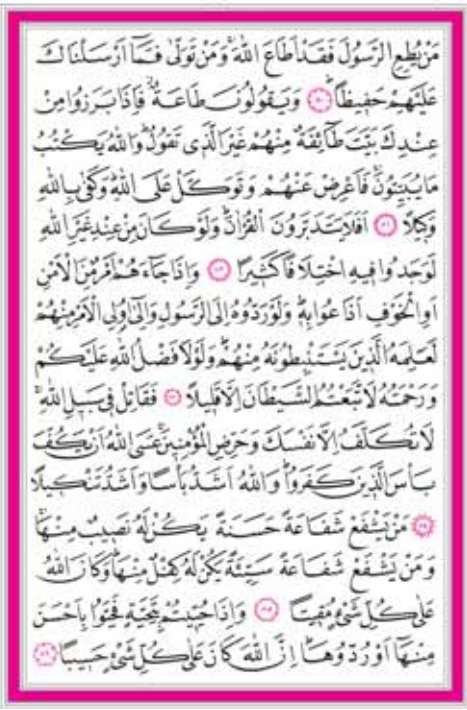 مَنْ يُطِعِ الرَّسُولَ فَقَدْ اَطَاعَ اللّٰهَۚ وَمَنْ تَوَلّٰى فَمَٓا اَرْسَلْنَاكَ
عَلَيْهِمْ حَفٖيظاًۜ ﴿٨٠﴾ وَيَقُولُونَ طَاعَةٌۘ فَاِذَا بَرَزُوا مِنْ
عِنْدِكَ بَيَّتَ طَٓائِفَةٌ مِنْهُمْ غَيْرَ الَّذٖي تَقُولُۜ وَاللّٰهُ يَكْتُبُ
مَا يُبَيِّتُونَۚ فَاَعْرِضْ عَنْهُمْ وَتَوَكَّلْ عَلَى اللّٰهِۜ وَكَفٰى بِاللّٰهِ
وَكٖيلاً ﴿٨١﴾ اَفَلَا يَتَدَبَّرُونَ الْقُرْاٰنَۜ وَلَوْ كَانَ مِنْ عِنْدِ غَيْرِ اللّٰهِ
لَوَجَدُوا فٖيهِ اخْتِلَافاً كَثٖيراً ﴿٨٢﴾ وَاِذَا جَٓاءَهُمْ اَمْرٌ مِنَ الْاَمْنِ
اَوِ الْخَوْفِ اَذَاعُوا بِهٖۜ وَلَوْ رَدُّوهُ اِلَى الرَّسُولِ وَاِلٰٓى اُو۬لِي الْاَمْرِ مِنْهُمْ
لَعَلِمَهُ الَّذٖينَ يَسْتَنْبِطُونَهُ مِنْهُمْۜ وَلَوْلَا فَضْلُ اللّٰهِ عَلَيْكُمْ
وَرَحْمَتُهُ لَاتَّبَعْتُمُ الشَّيْطَانَ اِلَّا قَلٖيلاً ﴿٨٣﴾ فَقَاتِلْ فٖي سَبٖيلِ اللّٰهِۚ
لَا تُكَلَّفُ اِلَّا نَفْسَكَ وَحَرِّضِ الْمُؤْمِنٖينَۚ عَسَى اللّٰهُ اَنْ يَكُفَّ
بَأْسَ الَّذٖينَ كَفَرُواۜ وَاللّٰهُ اَشَدُّ بَأْساً وَاَشَدُّ تَنْكٖيلاً
﴿٨٤﴾ مَنْ يَشْفَعْ شَفَاعَةً حَسَنَةً يَكُنْ لَهُ نَصٖيبٌ مِنْهَاۚ
وَمَنْ يَشْفَعْ شَفَاعَةً سَيِّئَةً يَكُنْ لَهُ كِفْلٌ مِنْهَاۜ وَكَانَ اللّٰهُ
عَلٰى كُلِّ شَيْءٍ مُقٖيتاً ﴿٨٥﴾ وَاِذَا حُيّٖيتُمْ بِتَحِيَّةٍ فَحَيُّوا بِاَحْسَنَ
مِنْهَٓا اَوْ رُدُّوهَاۜ اِنَّ اللّٰهَ كَانَ عَلٰى كُلِّ شَيْءٍ حَسٖيباً ﴿٨٦﴾